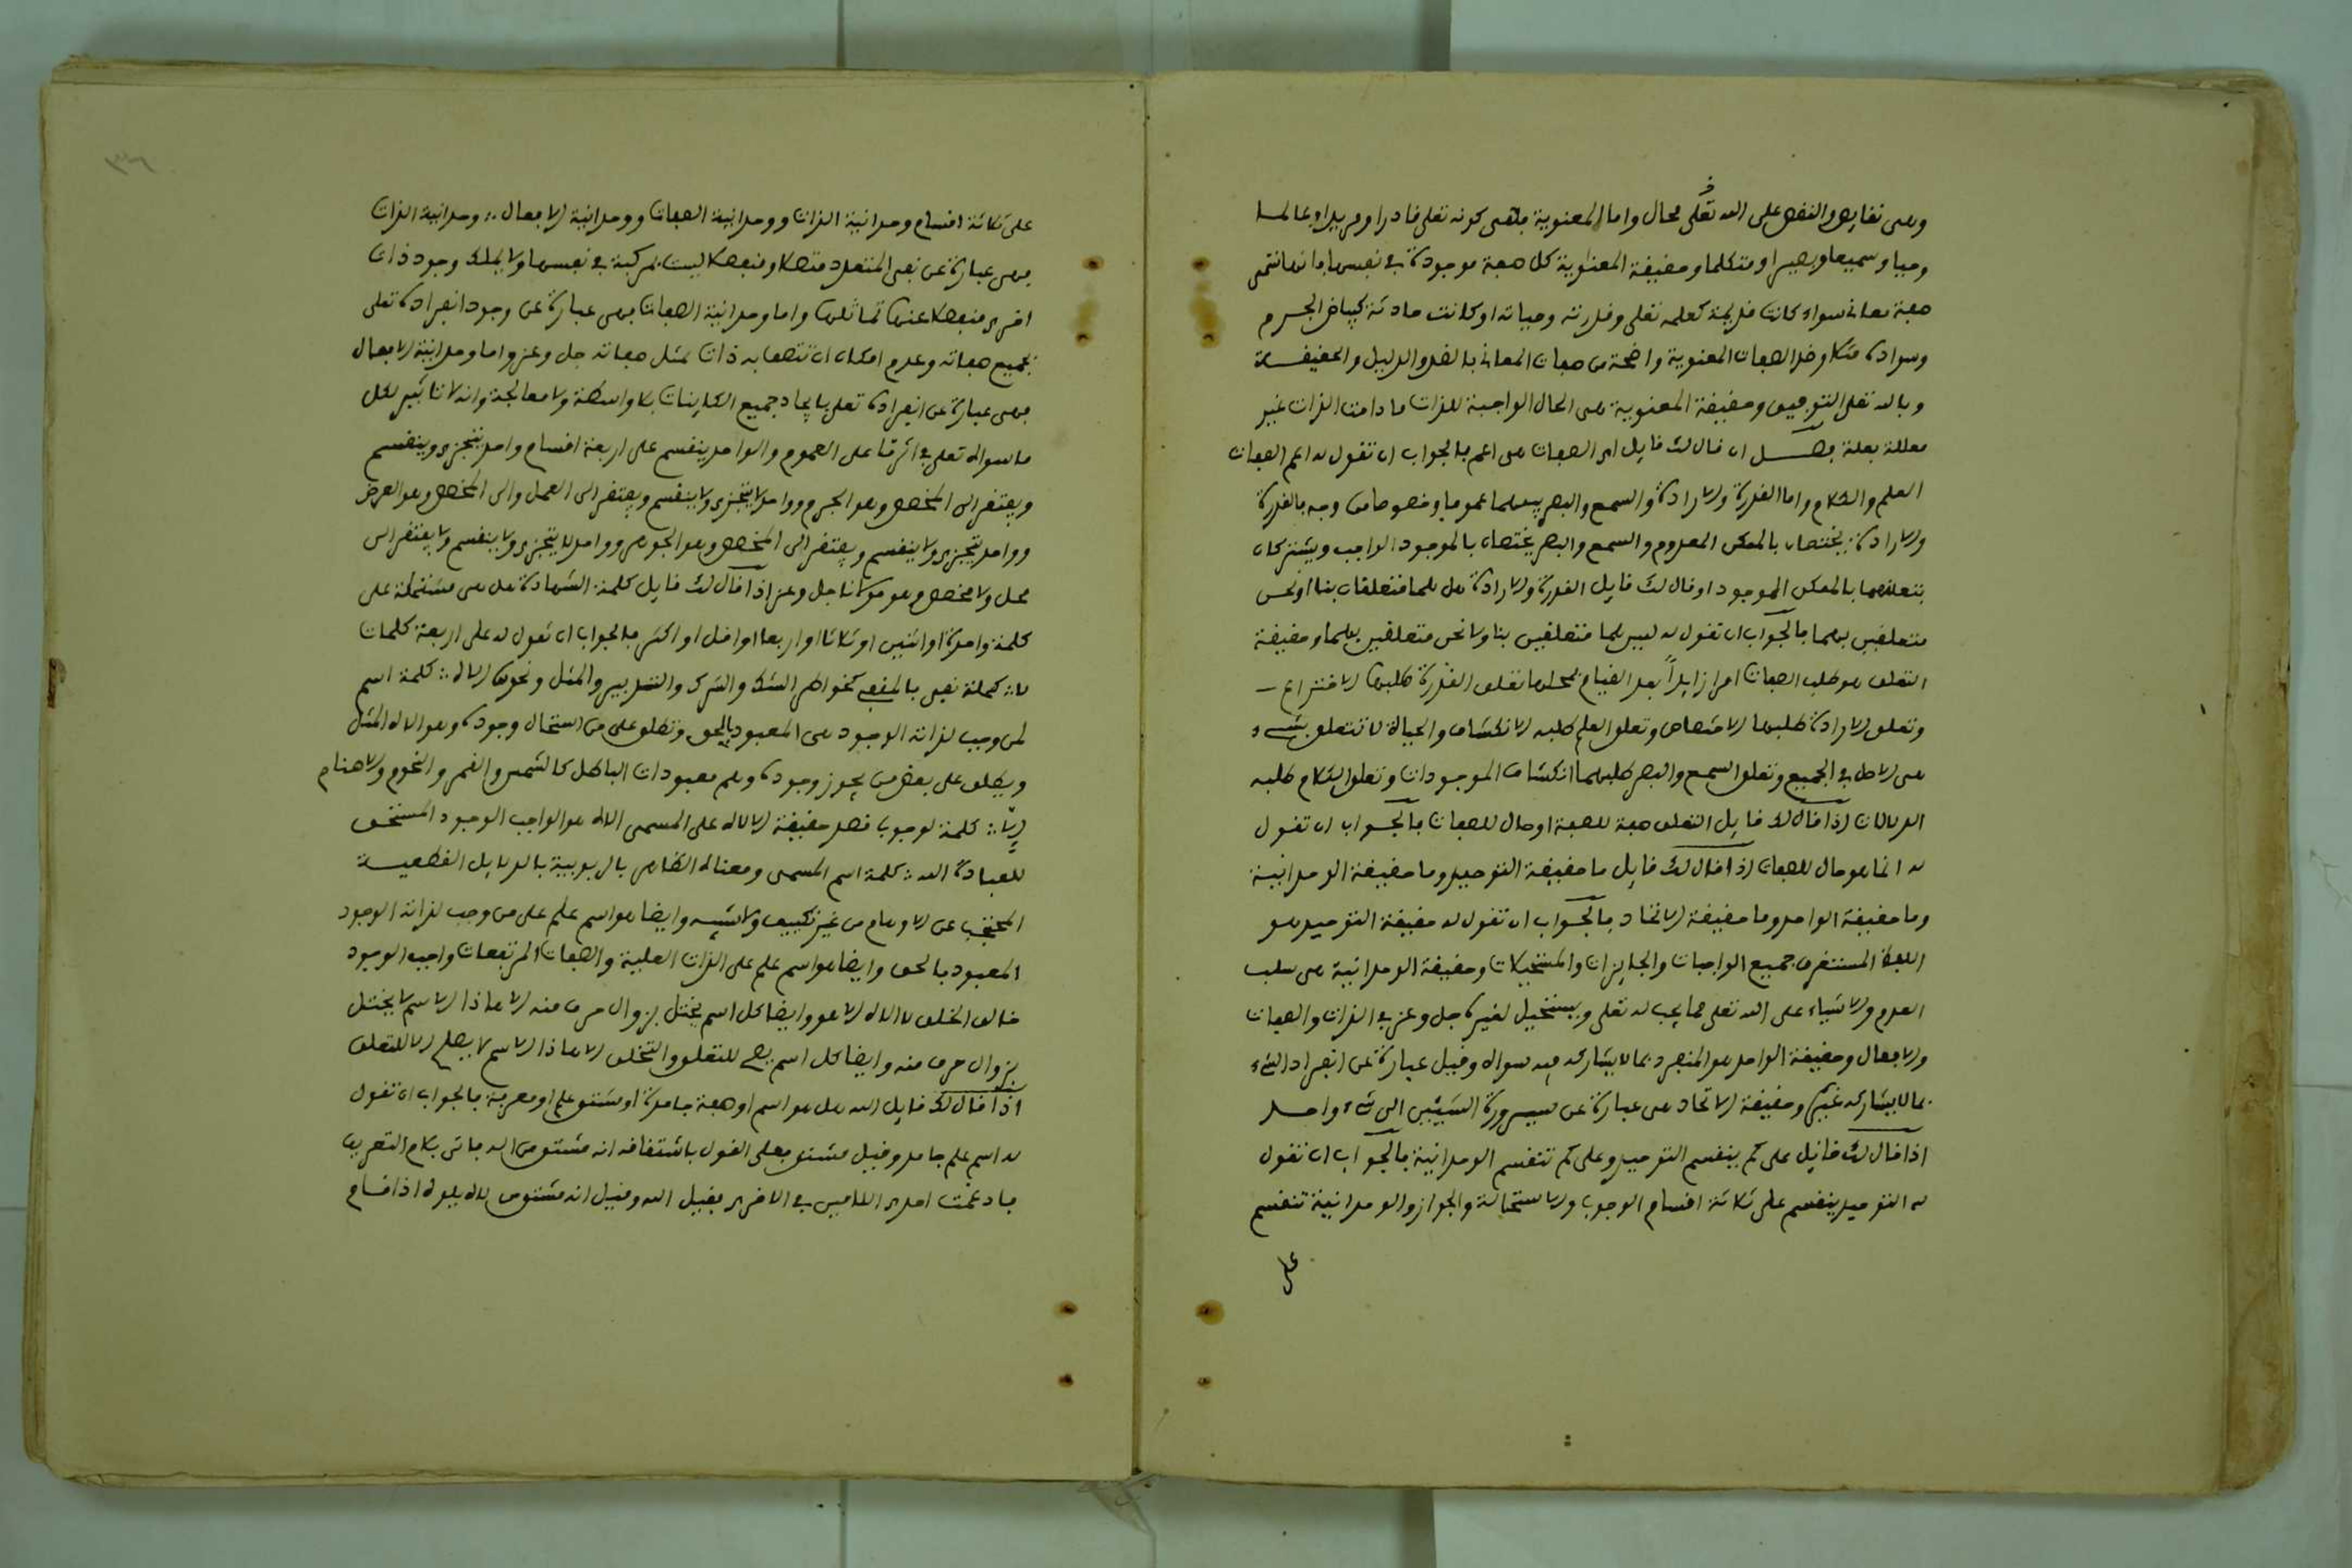 وهى نقايص والنقص على الله تعلى محال واما المعنوية فهى كونه تعلى قادرا ومريدا وعالما
وحيا وسميعا وبصيرا ومتكلما وحقيقة المعنوية كل صفة موجودة في نفسها فانها تنتمى
صفة معانى سواء كانت قديمة كعلمه تعلى وقدرته وحياته او كانت حادثة كبياض الجرم
وسواده مثلا وخذ الصفات المعنوية واضحة من صفات المعانى بالعد والدليل والحقيقة
وبالله تعلى التوفيق وحقيقة المعنوية هى الحال الواجبة للذات ما دامت الذات غير
معللة بعلة فصل ان قال لك قايل اى الصفات هى اعم فالجواب ان تقول له اعم الصفات
العلم والكلام واما القدرة والارادة والسمع والبصر فبينهما عموما وخصوصا من وجه فالقدرة
والارادة يختصان بالممكن المعدوم والسمع والبصر يختصان بالموجود الواجب ويشتركان
بتعلقهما بالممكن الموجود او قال لك قايل القدرة والارادة هل هما متعلقان بنا او نحن
متعلقين بهما فالجواب ان تقول له ليس هما متعلقين بنا ولا نحن متعلقين بهما وحقيقة
التعلق هو طلب الصفات امرا زايدا بعد القيام بمحلها تعلق القدرة طلبها الاختراع
وتعلق الارادة طلبها الاختصاص وتعلق العلم طلبه الانكشاف والحياة لا تتعلق بشيء
هى الاصل في الجميع وتعلق السمع والبصر طلبهما انكشاف الموجودات وتعلق الكلام طلبه
الدلالات اذا قال لك قايل التعلق صفة للصفة او حال للصفات فالجواب ان تقول
له انما هو حال للصفات اذا قال لك قايل ما حقيقة التوحيد وما حقيقة الوحدانية
وما حقيقة الواحد وما حقيقة الاتحاد فالجواب ان تقول له حقيقة التوحيد هو
اللفظ المستغرق جميع الواجبات والجايزات والمستحيلات وحقيقة الوحدانية هى سلب
العدم والاشياء على الله تعلى مما يجب له تعلى ويستحيل لغيره جل وعز في الذات والصفات
والافعال وحقيقة الواحد هو المنفرد بما لا يشاركه فيه سواه وقيل عبارة عن انفراد الشيء
بما لا يشاركه غيره وحقيقة الاتحاد هى عبارة عن صيرورة الشيئين الى شيء واحد
اذا قال لك قايل على كم ينقسم التوحيد وعلى كم تنقسم الوحدانية فالجواب ان تقول
له التوحيد ينقسم على ثلاثة اقسام الوجوب والاستحالة والجواز والوحدانية تنقسم
على
على ثلاثة اقسام وحدانية الذات ووحدانية الصفات ووحدانية الافعال وحدانية الذات
فهى عبارة عن نفى المتعدد متصلا ومنفصلا ليست مركبة في نفسها ولا يملك وجود ذات
اخرى منفصلا عنها تماثلها واما وحدانية الصفات فهى عبارة عن وجود انفراده تعلى
بجميع صفاته وعدم امكان ان تتصف به ذات بمثل صفاته جل وعز واما وحدانية الافعال
فهى عبارة عن انفراده تعلى بايجاد جميع الكاينات بلا واسطة ولا معالجة وانه لا تاثير لكل
ما سواه تعلى في اثر ما على العموم والواحد ينقسم على اربعة اقسام واحد يتجزى وينقسم
ويفتقر الى المخصص وهو الجرم وواحد لا يتجزى ولا ينقسم ويفتقر الى المحل والى المخصص وهو العرض
وواحد لا يتجزى ولا ينقسم ويفتقر الى المخصص وهو الجوهر وواحد لا يتجزى ولا ينقسم ولا يفتقر الى
محل ولا مخصص وهو مولانا جل وعز اذا قال لك قايل كلمة الشهادة هل هى مشتملة على
كلمة واحدة او اثنين او ثلاثا او اربعا او اقل او اكثر فالجواب ان تقول له على اربعة كلمات
لا كلمة نفى بالمنفى كخواطر الشك والشرك والتدبير والمثل ونحوها الاه كلمة اسم
لمن وجب لذاته الوجود هى المعبود بالحق وتطلق على من استحال وجوده وهو الاله المثل
ويطلق على بعض من يجوز وجوده وهم معبودات الباطل كالشمس والقمر والنجوم والاصنام
الا كلمة لوجوب قصد حقيقة الالاه على المسمى الاله هو الواجب الوجود المستحق
للعبادة الله كلمة اسم المسمى ومعناه الظاهر بالربوبية بالدلايل القطعية
المحتجب عن الاوهام من غير تكييف ولا تشبيه وايضا هو اسم علم على من وجب لذاته الوجود
المعبود بالحق وايضا هو اسم علم على الذات العلية والصفات المرتفعات واجب الوجود
خالق الخلق لا الاه الا هو وايضا كل اسم يختل بزوال حرف منه الا هاذا الاسم لا يختل
بزوال حرف منه وايضا كل اسم يصح للتعلق والتخلق الا هاذا الاسم لا يصلح الا للتعلق
اذا قال لك قايل الله هل هو اسم او صفة جامدة او مشتق علم او معرفة فالجواب ان تقول
له اسم علم جامد وقيل مشتق فعلى القول باشتقاقه انه مشتق من اله فاتى بلام التعريف
فادغمت احدى اللامين في الاخرى فقيل الله وقيل انه مشتق من لاه يلوه اذا اقام